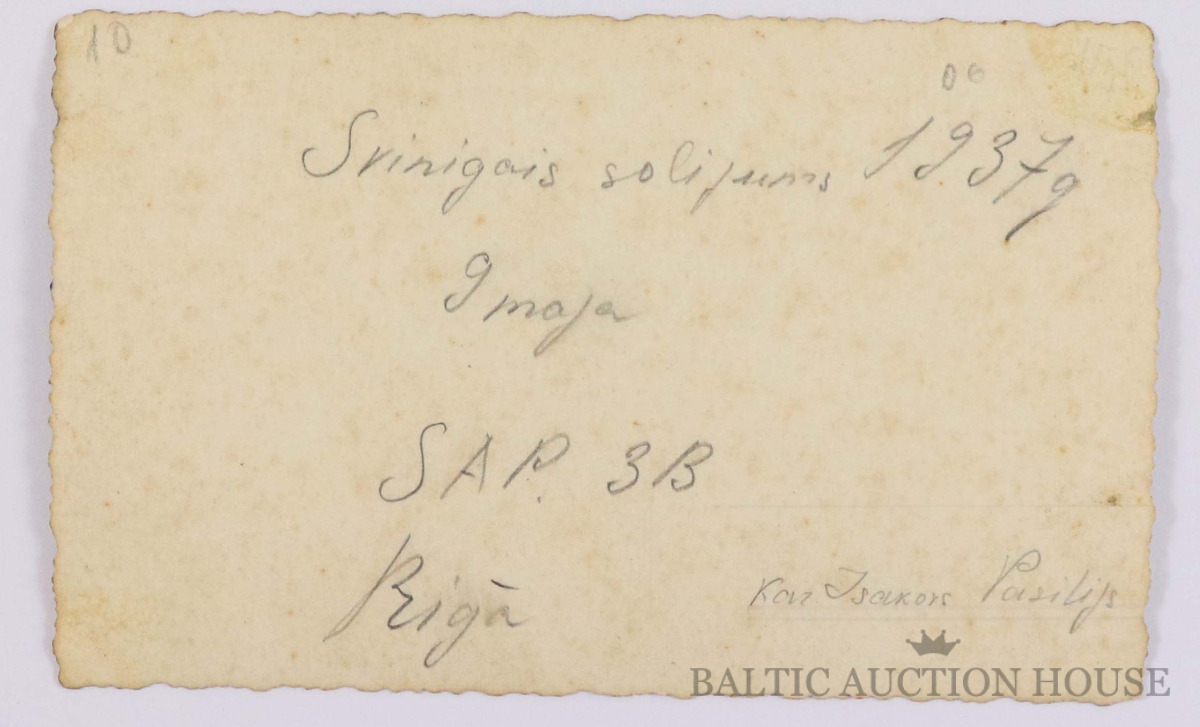 10
06
Svinigais solijums 1937g
9 maja
SAP. 3B
Rigā
Kar Isakovs Vasilijs
BALTIC AUCTION HOUSE